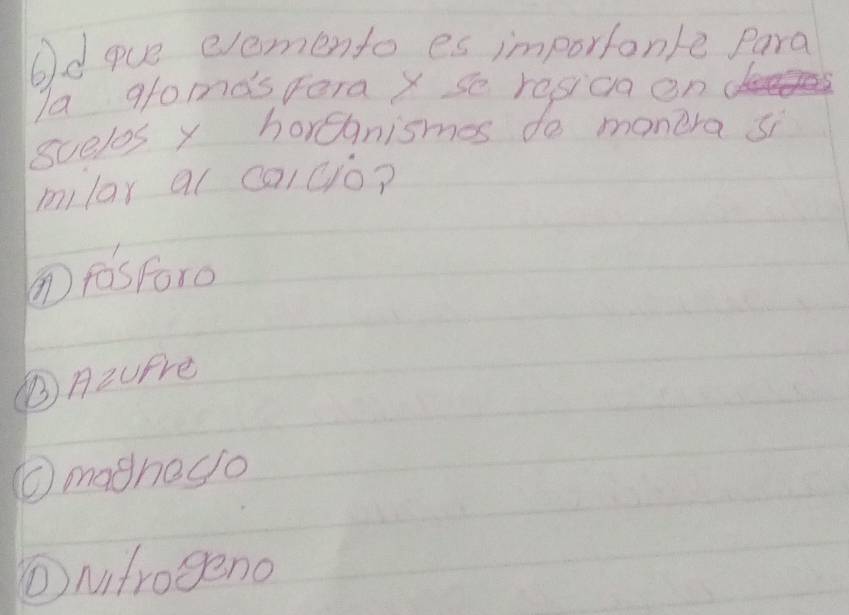 6) d que elemento es importante Para
la atomósfera y se resica en
suelos y horganismos de manera si
milar al calcio?
A) Fósforo
B) Azufre
C) magnesio
D) Nitrogeno